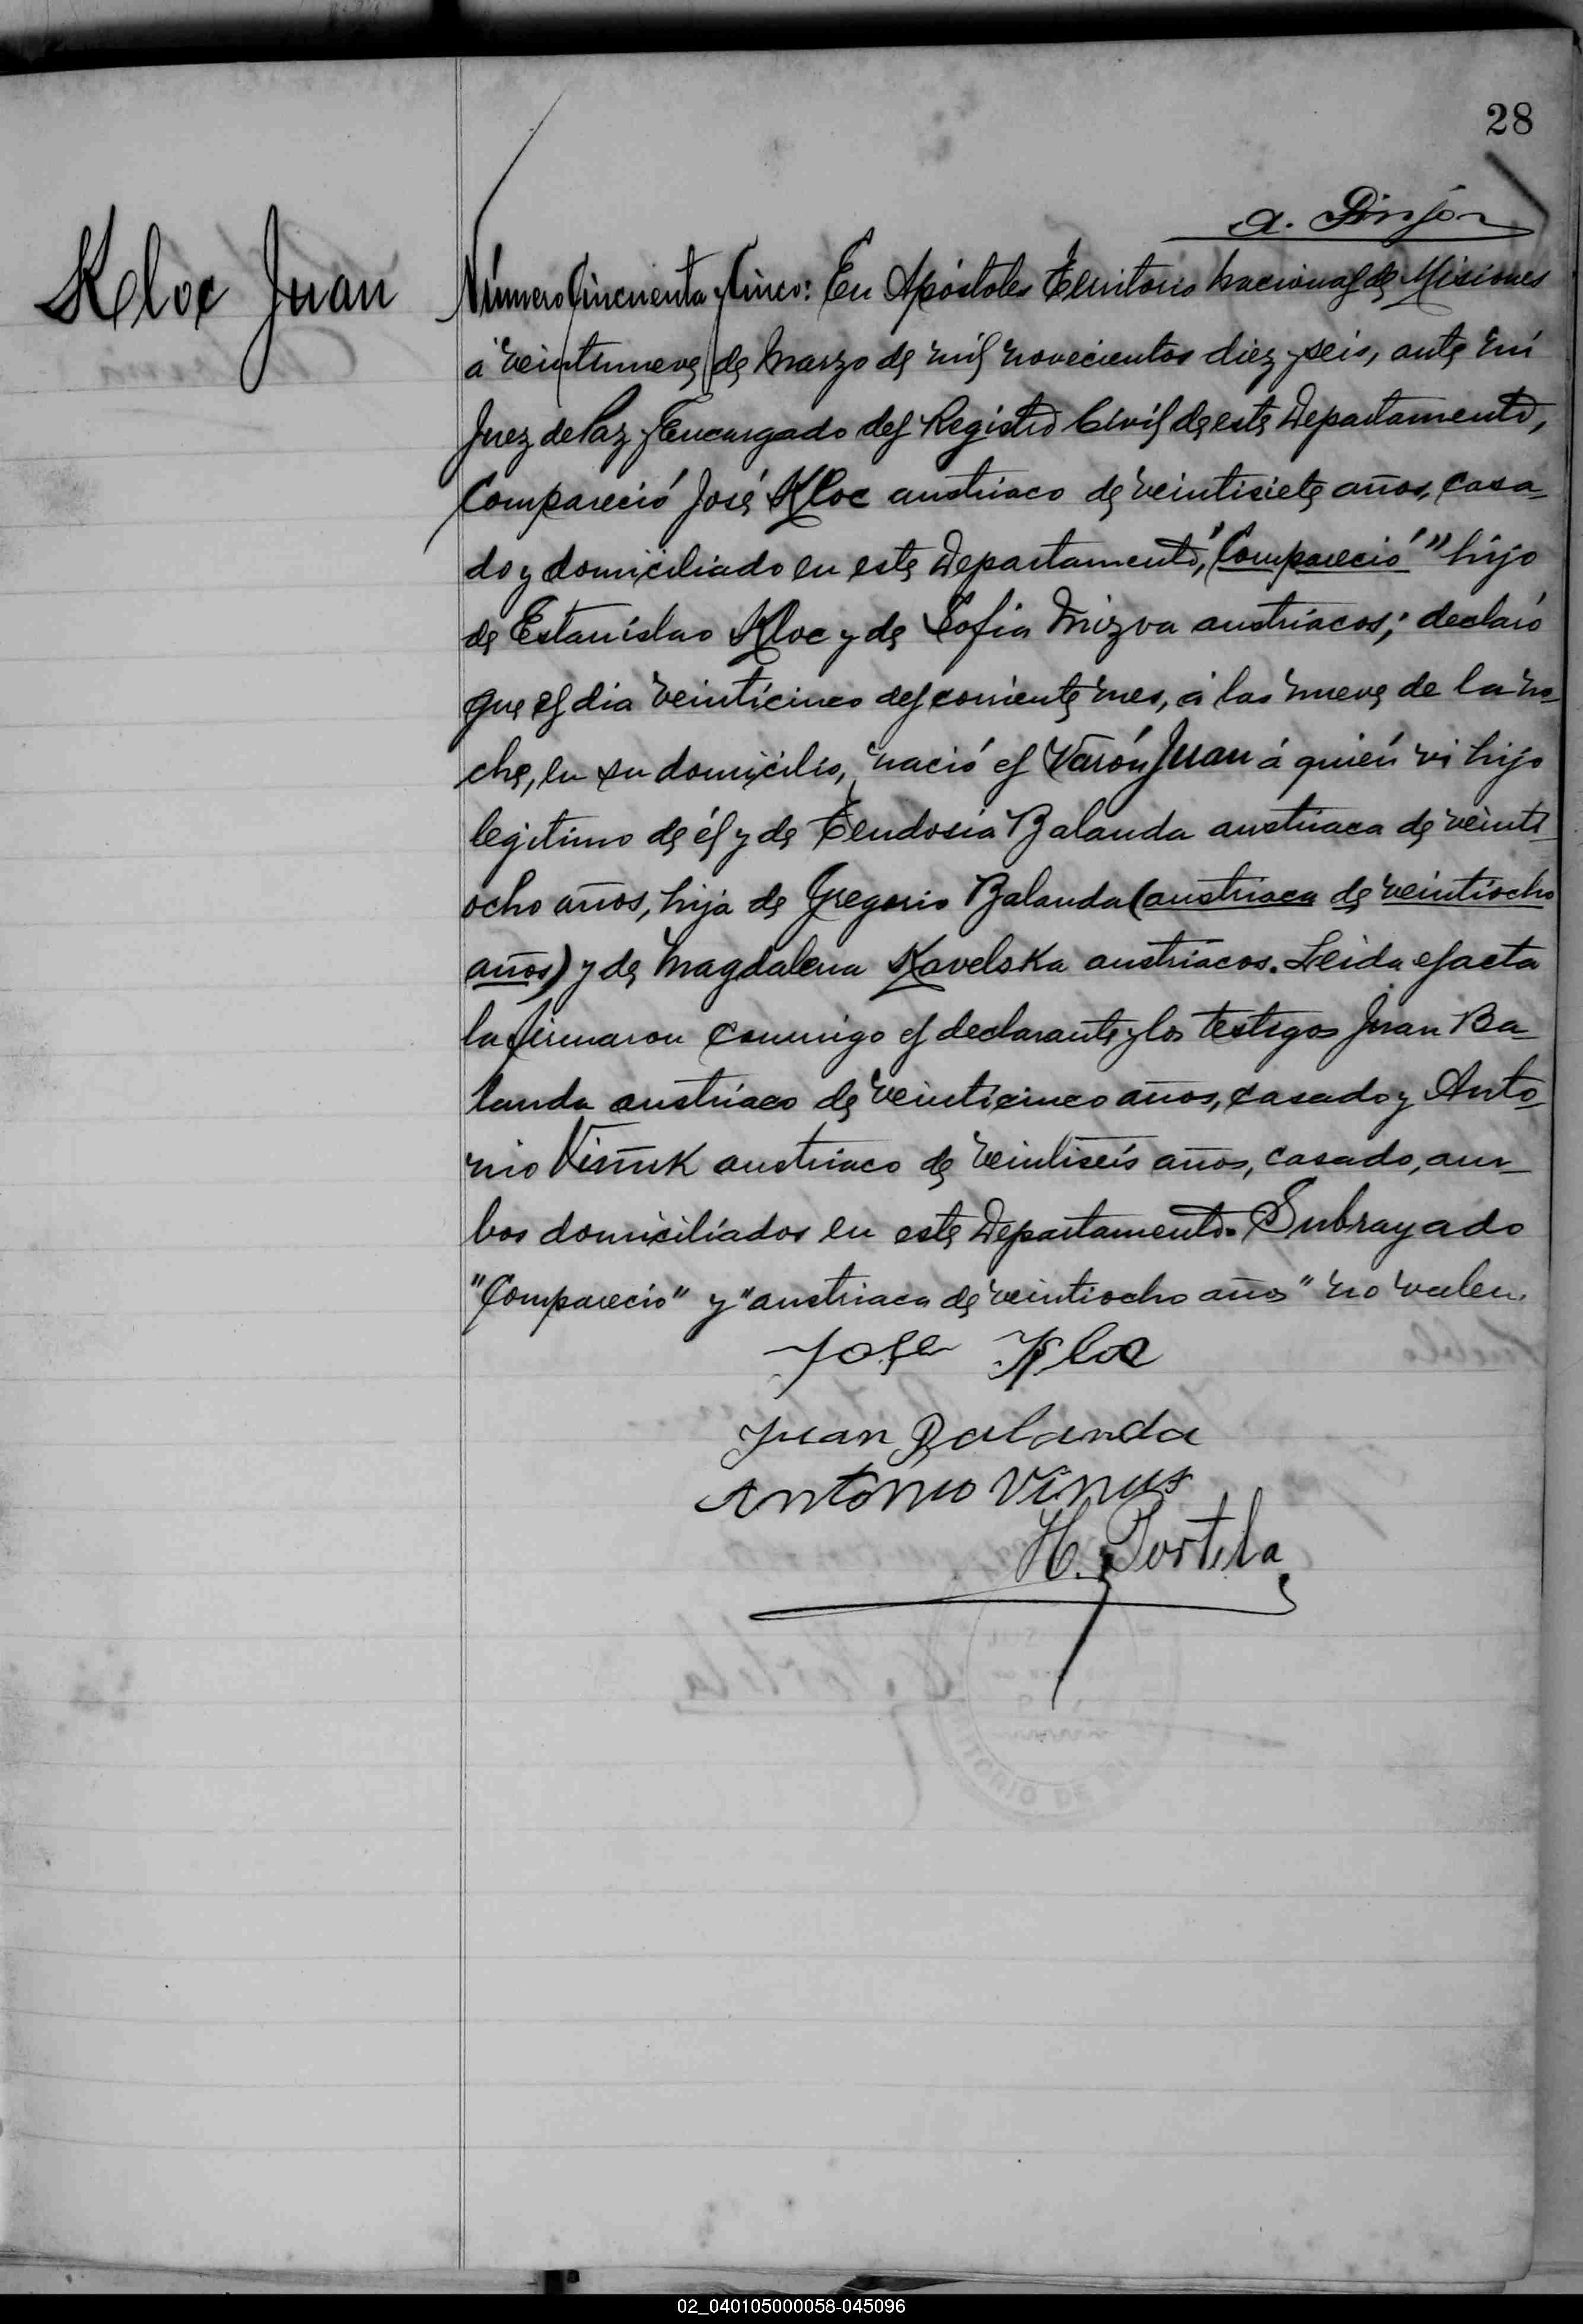 28
A. Pinjón
Kloc Juan
Número Cincuenta y Cinco: En Apóstoles Territorio Nacional de Misiones
á veintinueve de Marzo de mil novecientos diez y seis, ante mí
Juez de Paz y Encargado del Registro Civil de este Departamento,
Compareció José Kloc austriaco de veintisiete años, casa-
do y domiciliado en este Departamento, "Compareció" hijo
de Estanislao Kloc y de Sofia Mizva austriacos; declaró
que el dia veinticinco del corriente mes, á las nueve de la no-
che, en su domicilio, nació el Varón Juan á quién vi hijo
legitimo de él y de Teudosia Balanda austriaca de veinti-
ocho años, hija de Gregorio Balanda (austriaca de veintiocho
años) y de Magdalena Kavelska austriacos. Leida el acta
la firmaron conmigo el declarante y los testigos Juan Ba-
landa austriaco de veinticinco años, casado y Anto-
nio Vinuk austriaco de veintiseis años, casado, am-
bos domiciliados en este Departamento. Subrayado
"Compareció" y "austriaca de veintiocho años" no valen.
Jose Kloc
Juan Balanda
Antonio Vinuk
H. Portela
02_040105000058-045096